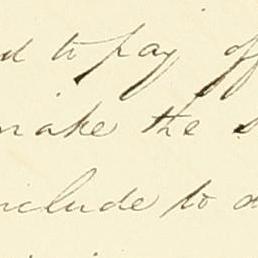 to pay off
make the
include to